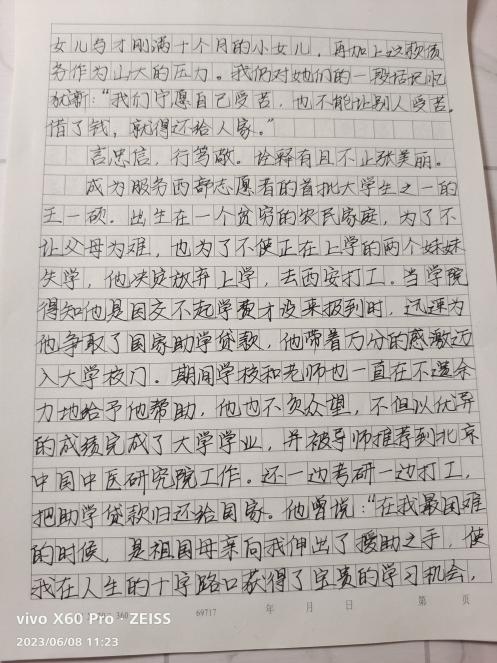 女儿与才刚满十个月的小女儿，再加上这款债
务作为山大的压力。我仍对她们的一段话记忆
犹新："我们宁愿自己受苦，也不能让别人受苦。
借了钱，就得还给人家。"
言忠信，行笃敬。诠释有且不止张美丽。
成为服务西部志愿者的首批大学生之一的
王一硕。出生在一个贫穷的农民家庭，为了不
让父母为难，也为了不使正在上学的两个妹妹
失学，他决定放弃上学，去西安打工。当学院
得知他是因交不起学费才没来报到时，迅速为
他争取了国家助学贷款，他带着万分的感激迈
入大学校门。期间学校和老师也一直在不遗余
力地给予他帮助，他也不负众望，不但以优异
的成绩完成了大学学业，并被导师推荐到北京
中国中医研究院工作。还一边考研一边打工，
把助学贷款归还给国家。他曾说："在我最困难
的时候，是祖国母亲向我伸出了援助之手，使
我在人生的十字路口获得了宝贵的学习机会，
360 69717 年 月 日 第 页
vivo X60 Pro · ZEISS
2023/06/08 11:23